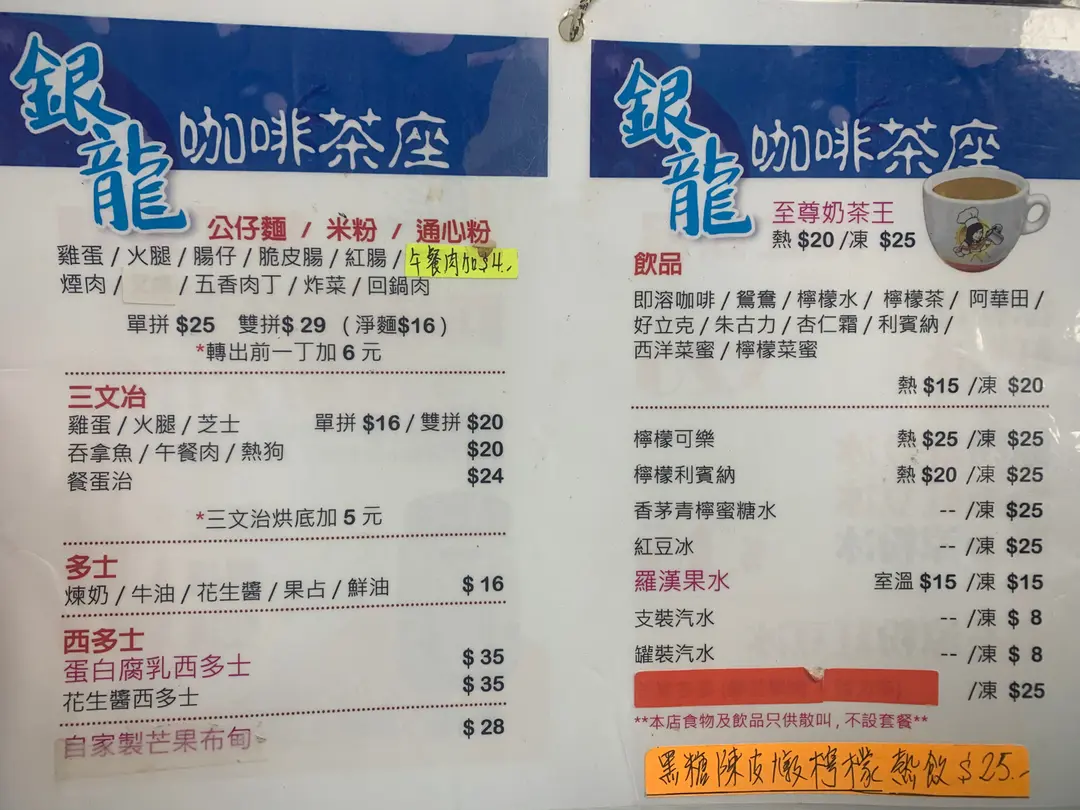 銀龍 咖啡茶座
公仔麵 / 米粉 / 通心粉
雞蛋 / 火腿 / 腸仔 / 脆皮腸 / 紅腸 / 午餐肉加$4.-
煙肉 / / 五香肉丁 / 炸菜 / 回鍋肉
單拼 $25 雙拼$ 29 ( 淨麵$16 )
*轉出前一丁加 6 元
三文冶
雞蛋 / 火腿 / 芝士 單拼 $16 / 雙拼 $20
吞拿魚 / 午餐肉 / 熱狗 $20
餐蛋治 $24
*三文治烘底加 5 元
多士
煉奶 / 牛油 / 花生醬 / 果占 / 鮮油 $ 16
西多士
蛋白腐乳西多士 $ 35
花生醬西多士 $ 35
自家製芒果布甸 $ 28
銀龍 咖啡茶座
至尊奶茶王
熱 $20 /凍 $25
飲品
即溶咖啡 / 鴛鴦 / 檸檬水 / 檸檬茶 / 阿華田 /
好立克 / 朱古力 / 杏仁霜 / 利賓納 /
西洋菜蜜 / 檸檬菜蜜
熱 $15 /凍 $20
檸檬可樂 熱 $25 /凍 $25
檸檬利賓納 熱 $20 /凍 $25
香茅青檸蜜糖水 -- /凍 $25
紅豆冰 -- /凍 $25
羅漢果水 室溫 $15 /凍 $15
支裝汽水 -- /凍 $ 8
罐裝汽水 -- /凍 $ 8
/凍 $25
**本店食物及飲品只供散叫 , 不設套餐**
黑糖陳皮燉檸檬 熱飲 $25.-